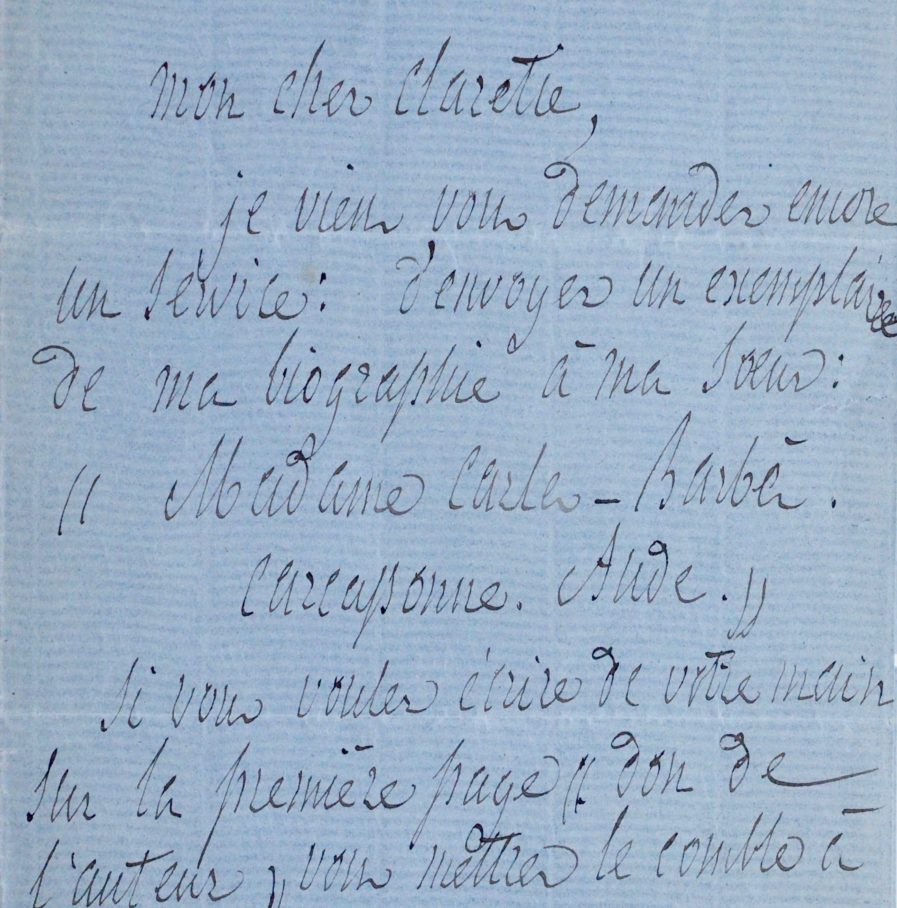 mon cher claretie,
je viens vous demander encore
un service: d'envoyer un exemplaire
de ma biographie à ma soeur:
" Madame Carles - Barbès.
carcassonne. Aude. "
si vous voulez écrire de votre main
sur la première page " don de
l'auteur " vous mettrez le comble à